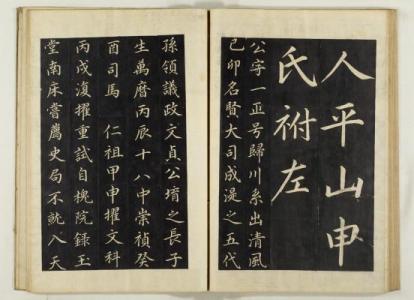 人平山申
氏祔左
公字一正号歸川系出清風
己卯名賢大司成湜之五代
孫領議政文貞公堉之長子
生萬曆丙辰十八中崇禎癸
酉司馬 仁祖甲申擢文科
丙戌復擢重試自槐院錄玉
堂南床嘗薦史局不就入天